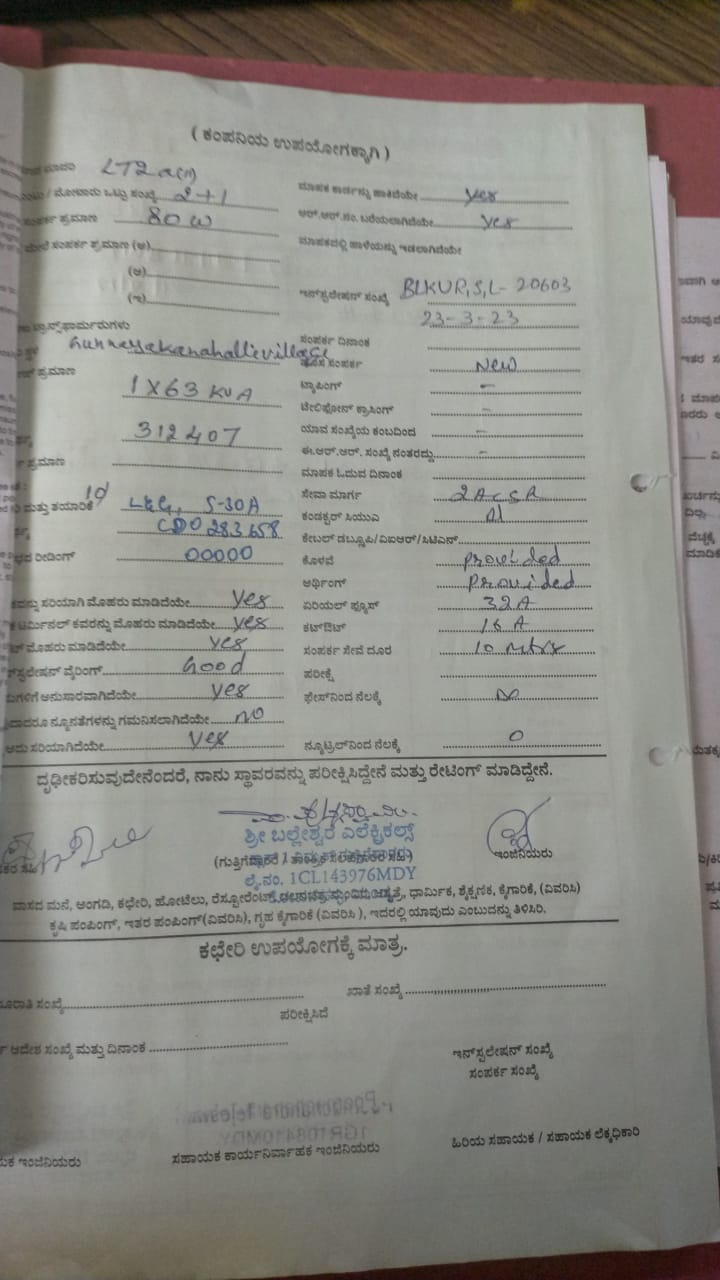 ( ಕಂಪನಿಯ ಉಪಯೋಗಕ್ಕಾಗಿ )
LT2 a(ii)
ಮೋಟಾರು ಒಟ್ಟು ಸಂಖ್ಯೆ 2+1
ಮಾಪಕ ಕಾರ್ಡನ್ನು ಹಾಕಿದೆಯೇ yes
ಸಂಪರ್ಕ ಪ್ರಮಾಣ 80 W
ಆರ್.ಆರ್.ನಂ. ಬರೆಯಲಾಗಿದೆಯೇ yes
ಮೇಲೆ ಸಂಪರ್ಕ ಪ್ರಮಾಣ (ಅ)
ಮಾಪಕದಲ್ಲಿ ಹಾಳೆಯನ್ನು ಇಡಲಾಗಿದೆಯೇ
(ಆ)
(ಇ)
ಇನ್‌ಸ್ಟಲೇಷನ್ ಸಂಖ್ಯೆ BLKUR,S,L- 20603
23-3-23
ಟ್ರಾನ್ಸ್‌ಫಾರ್ಮರುಗಳು
ಸಂಪರ್ಕ ದಿನಾಂಕ
Gunnayakanahalli village
ಹೊಸ ಸಂಪರ್ಕ New
ಪ್ರಮಾಣ 1X63 KVA
ಟ್ಯಾಪಿಂಗ್ -
ಟೆಲಿಫೋನ್ ಕ್ರಾಸಿಂಗ್ -
312407
ಯಾವ ಸಂಖ್ಯೆಯ ಕಂಬದಿಂದ -
ಈ.ಆರ್.ಆರ್. ಸಂಖ್ಯೆ ನಂತರದ್ದು -
ಪ್ರಮಾಣ
ಮಾಪಕ ಓದುವ ದಿನಾಂಕ
ಮತ್ತು ತಯಾರಿಕೆ L&G, 5-30A
ಸೇವಾ ಮಾರ್ಗ 2ACSR
CD0283658
ಕಂಡಕ್ಟರ್ ಸಿಯುಎ Al
ರೀಡಿಂಗ್ 00000
ಕೇಬಲ್ ಡಬ್ಲೂಪಿ/ವಿಐಆರ್/ಸಿಟಿಎನ್
ಕೊಳವೆ provided
ಅರ್ಥಿಂಗ್ Provided
ಸರಿಯಾಗಿ ಮೊಹರು ಮಾಡಿದೆಯೇ yes
ಏರಿಯಲ್ ಫ್ಯೂಸ್ 32A
ಟರ್ಮಿನಲ್ ಕವರನ್ನು ಮೊಹರು ಮಾಡಿದೆಯೇ yes
ಕಟ್‌ಔಟ್ 16 A
ಮೊಹರು ಮಾಡಿದೆಯೇ yes
ಸಂಪರ್ಕ ಸೇವೆ ದೂರ 10 mtrs
ವೈರಿಂಗ್ Good
ಪರೀಕ್ಷೆ
ಅನುಸಾರವಾಗಿದೆಯೇ yes
ಫೇಸ್‌ನಿಂದ ನೆಲಕ್ಕೆ ∞
ನ್ಯೂನತೆಗಳನ್ನು ಗಮನಿಸಲಾಗಿದೆಯೇ no
ಸರಿಯಾಗಿದೆಯೇ yes
ನ್ಯೂಟ್ರಲ್‌ನಿಂದ ನೆಲಕ್ಕೆ 0
ದೃಢೀಕರಿಸುವುದೇನೆಂದರೆ, ನಾನು ಸ್ಥಾವರವನ್ನು ಪರೀಕ್ಷಿಸಿದ್ದೇನೆ ಮತ್ತು ರೇಟಿಂಗ್ ಮಾಡಿದ್ದೇನೆ.
ಶ್ರೀ ಬಲ್ಲೇಶ್ವರ ಎಲೆಕ್ಟ್ರಿಕಲ್ಸ್
ಇಂಜಿನಿಯರು
ಲೈ.ನಂ. 1CL143976MDY
ವಾಸದ ಮನೆ, ಅಂಗಡಿ, ಕಛೇರಿ, ಹೋಟೆಲು, ರೆಸ್ಟೋರೆಂಟ್, ಧಾರ್ಮಿಕ, ಶೈಕ್ಷಣಿಕ, ಕೈಗಾರಿಕೆ, (ವಿವರಿಸಿ)
ಕೃಷಿ ಪಂಪಿಂಗ್, ಇತರ ಪಂಪಿಂಗ್(ವಿವರಿಸಿ), ಗೃಹ ಕೈಗಾರಿಕೆ (ವಿವರಿಸಿ ), ಇದರಲ್ಲಿ ಯಾವುದು ಎಂಬುದನ್ನು ತಿಳಿಸಿರಿ.
ಕಛೇರಿ ಉಪಯೋಗಕ್ಕೆ ಮಾತ್ರ.
ಸಂಖ್ಯೆ
ಖಾತೆ ಸಂಖ್ಯೆ
ಪರೀಕ್ಷಿಸಿದೆ
ಆದೇಶ ಸಂಖ್ಯೆ ಮತ್ತು ದಿನಾಂಕ
ಇನ್‌ಸ್ಟಲೇಷನ್ ಸಂಖ್ಯೆ
ಸಂಪರ್ಕ ಸಂಖ್ಯೆ
ಇಂಜಿನಿಯರು
ಸಹಾಯಕ ಕಾರ್ಯನಿರ್ವಾಹಕ ಇಂಜಿನಿಯರು
ಹಿರಿಯ ಸಹಾಯಕ / ಸಹಾಯಕ ಲೆಕ್ಕಧಿಕಾರಿ